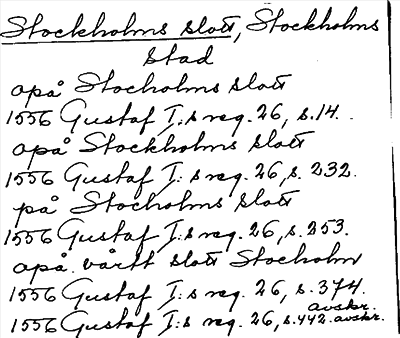 Stockholms slott, Stockholms
stad
opå Stocholms slott
1556 Gustaf I:s reg. 26, s. 14.
opå Stockholms slott
1556 Gustaf I:s reg. 26, s. 232.
på Stocholms slott
1556 Gustaf I:s reg. 26, s. 253.
opå vårtt slott Stocholm
1556 Gustaf I:s reg. 26, s. 374.
avskr.
1556 Gustaf I:s reg. 26, s. 442. avskr.